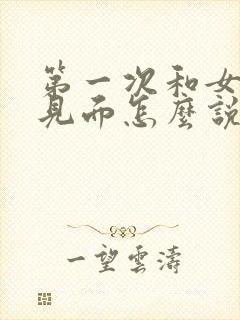 第一次和女
見面怎麼說
一望雲濤